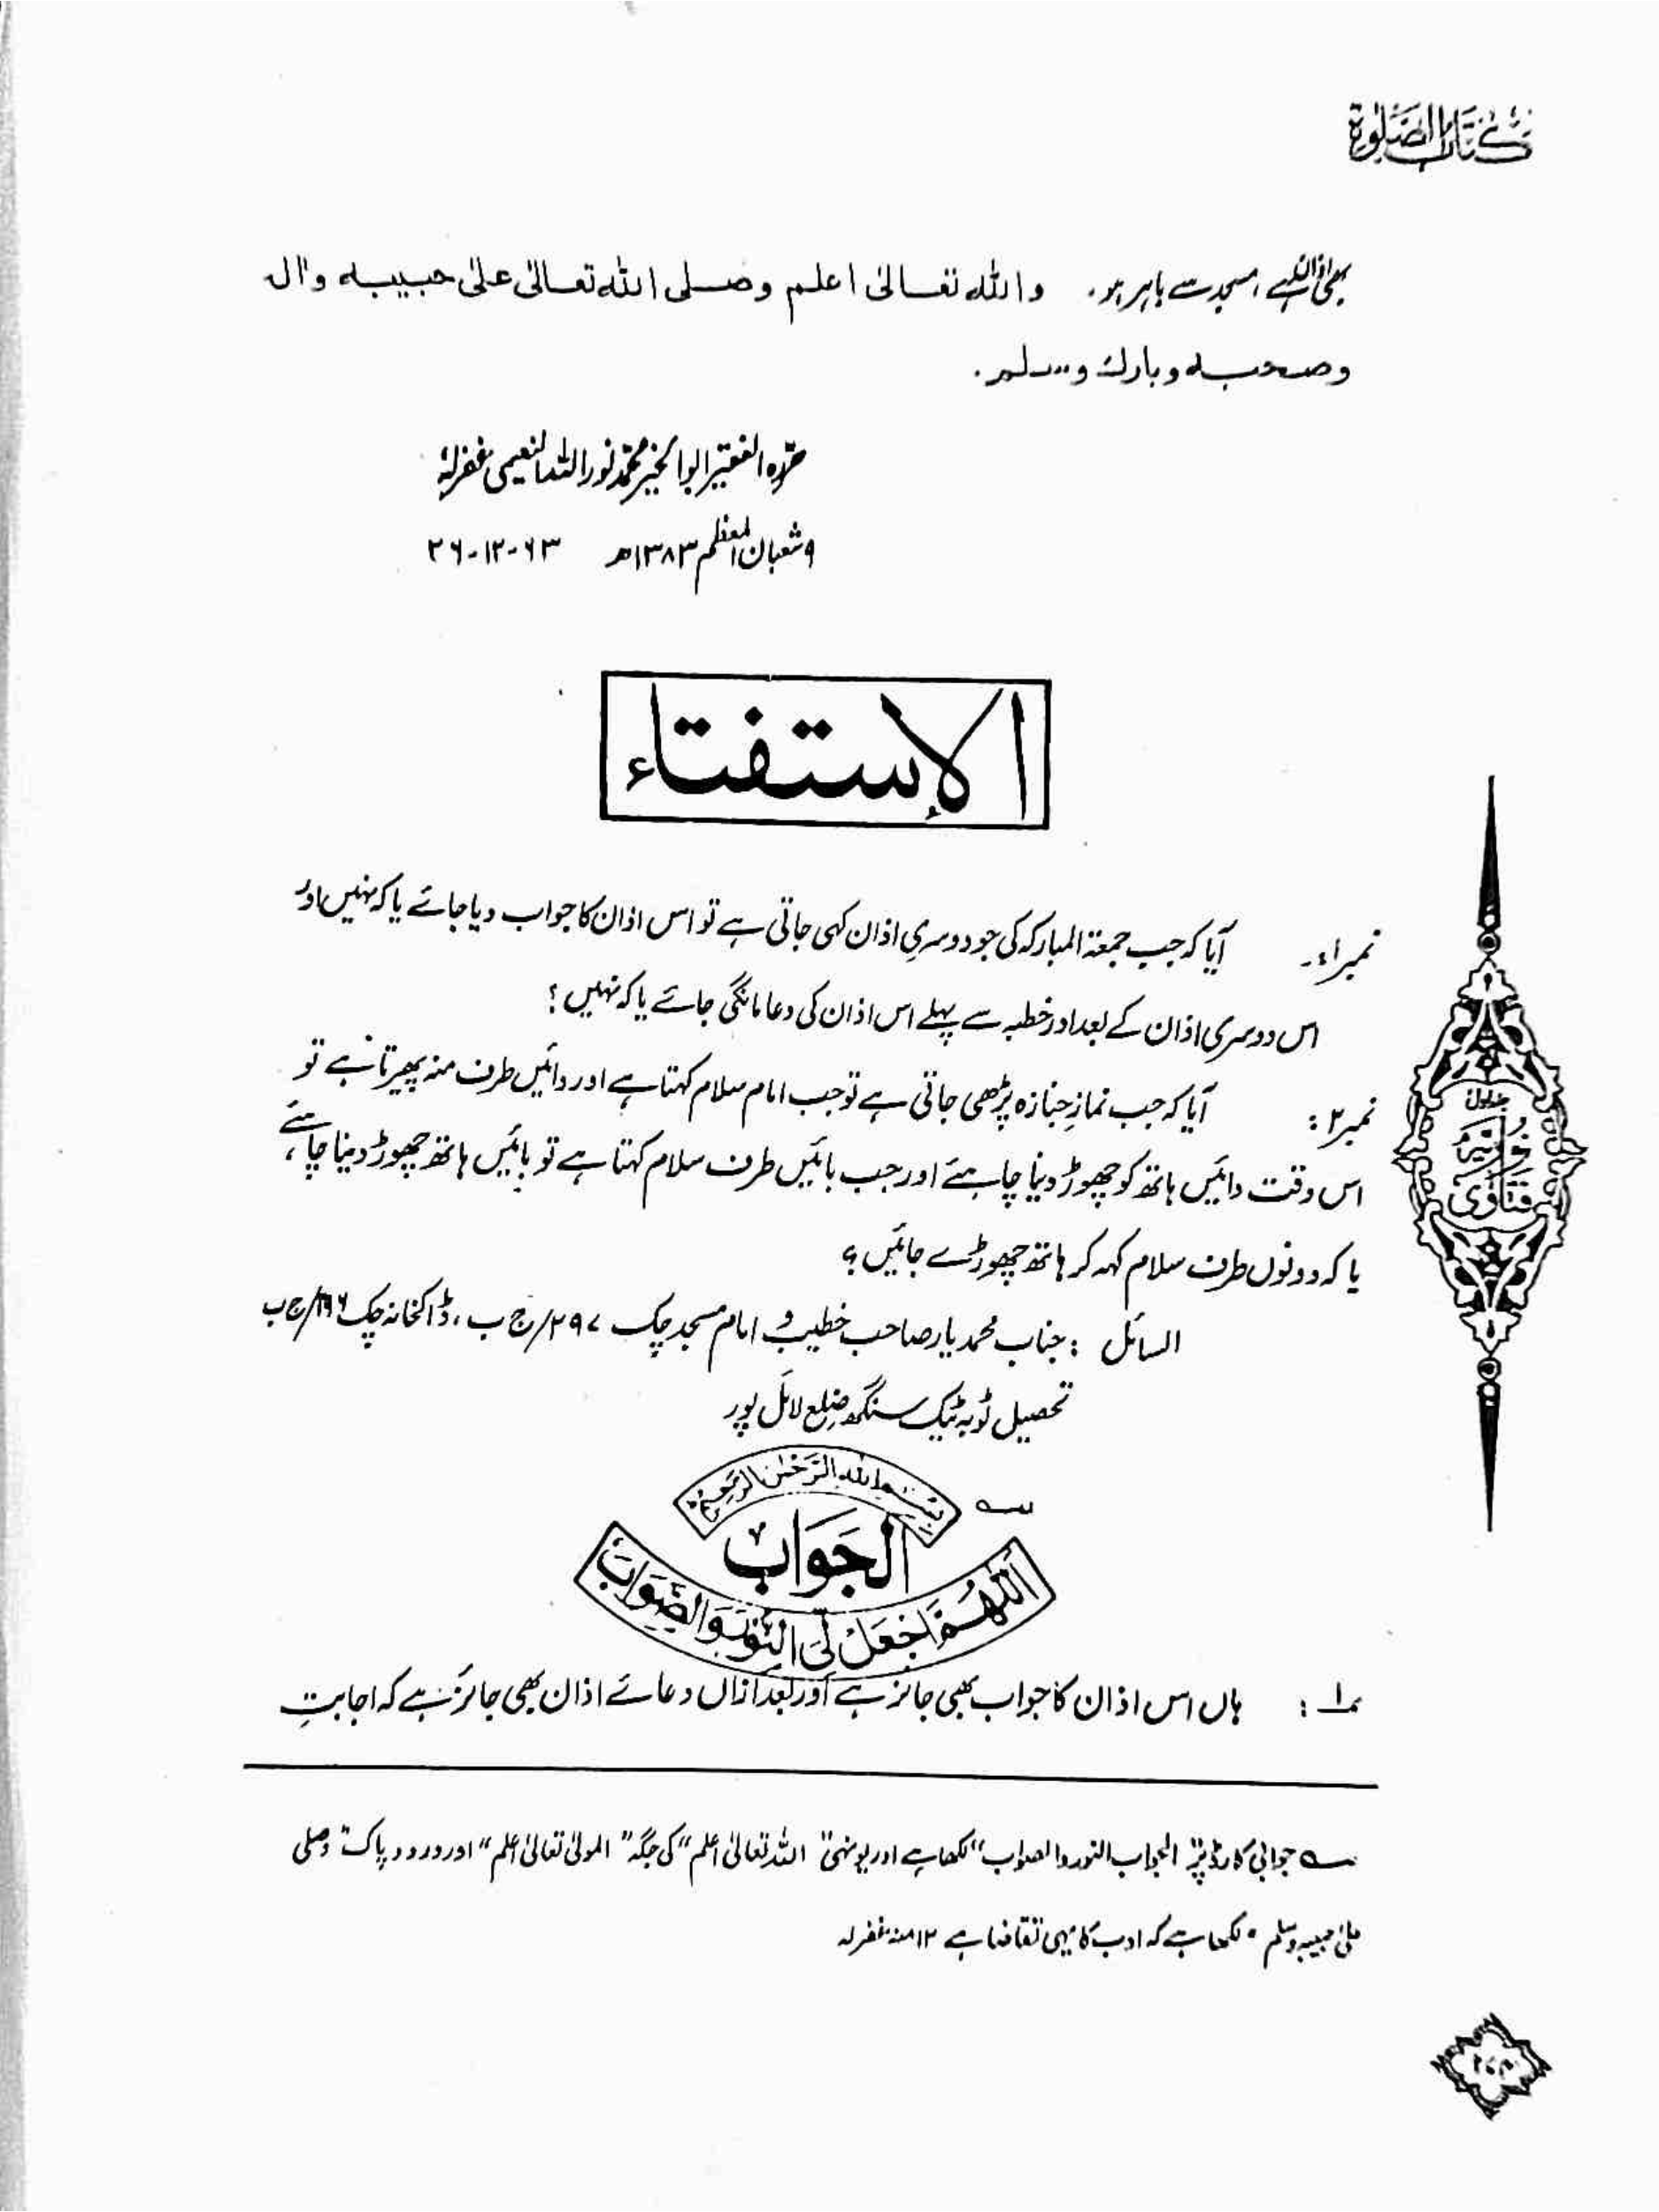 كتاب الصلوة
بھی اذان کہے، مسجد سے باہر ہو۔ والله تعالىٰ اعلم وصلى الله تعالىٰ علىٰ حبيبه واٰله
وصحبه وبارك وسلم.
حرّرہ الفقیر ابوالخیر محمّد نوراللہ النعیمی غفرلہٗ
۹ شعبان المعظم ۱۳۸۳ھ ۶۳-۱۲-۲۶
الإستفتاء
نمبر۱:۔ آیا کہ جب جمعۃ المبارکہ کی جو دوسری اذان کہی جاتی ہے تو اس اذان کا جواب دیا جائے یا کہ نہیں اور
اس دوسری اذان کے بعد اور خطبہ سے پہلے اس اذان کی دعا مانگی جائے یا کہ نہیں؟
نمبر۲: آیا کہ جب نمازِ جنازہ پڑھی جاتی ہے تو جب امام سلام کہتا ہے اور دائیں طرف منہ پھیرتا ہے تو
اس وقت دائیں ہاتھ کو چھوڑ دینا چاہئے اور جب بائیں طرف سلام کہتا ہے تو بائیں ہاتھ چھوڑ دینا چاہئے،
یا کہ دونوں طرف سلام کہہ کر ہاتھ چھوڑے جائیں؟
السائل: جناب محمد یار صاحب خطیب و امام مسجد چک ۲۹۷/ج ب، ڈاکخانہ چک /ج ب
تحصیل ٹوبہ ٹیک سنگھ ضلع لائل پور
بسم الله الرحمٰن الرحيم
الجواب
اللهم اجعل لی النور والصواب
۱: ہاں اس اذان کا جواب بھی جائز ہے اور بعد ازاں دعائے اذان بھی جائز ہے کہ اجابتِ
جوابی کارڈ پر "الجواب النور والصواب" لکھا ہے اور یونہی "اللہ تعالیٰ اعلم" کی جگہ "المولیٰ تعالیٰ اعلم" اور درود پاک "وصلی
علیٰ حبیبہ وسلم" لکھا ہے کہ ادب کا یہی تقاضا ہے ۱۲ منہ غفرلہ
جلد اول
نوریہ
فتاویٰ